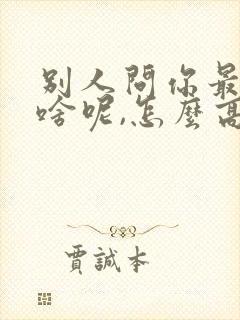 别人問你最
啥呢,怎麼高
賈誠本